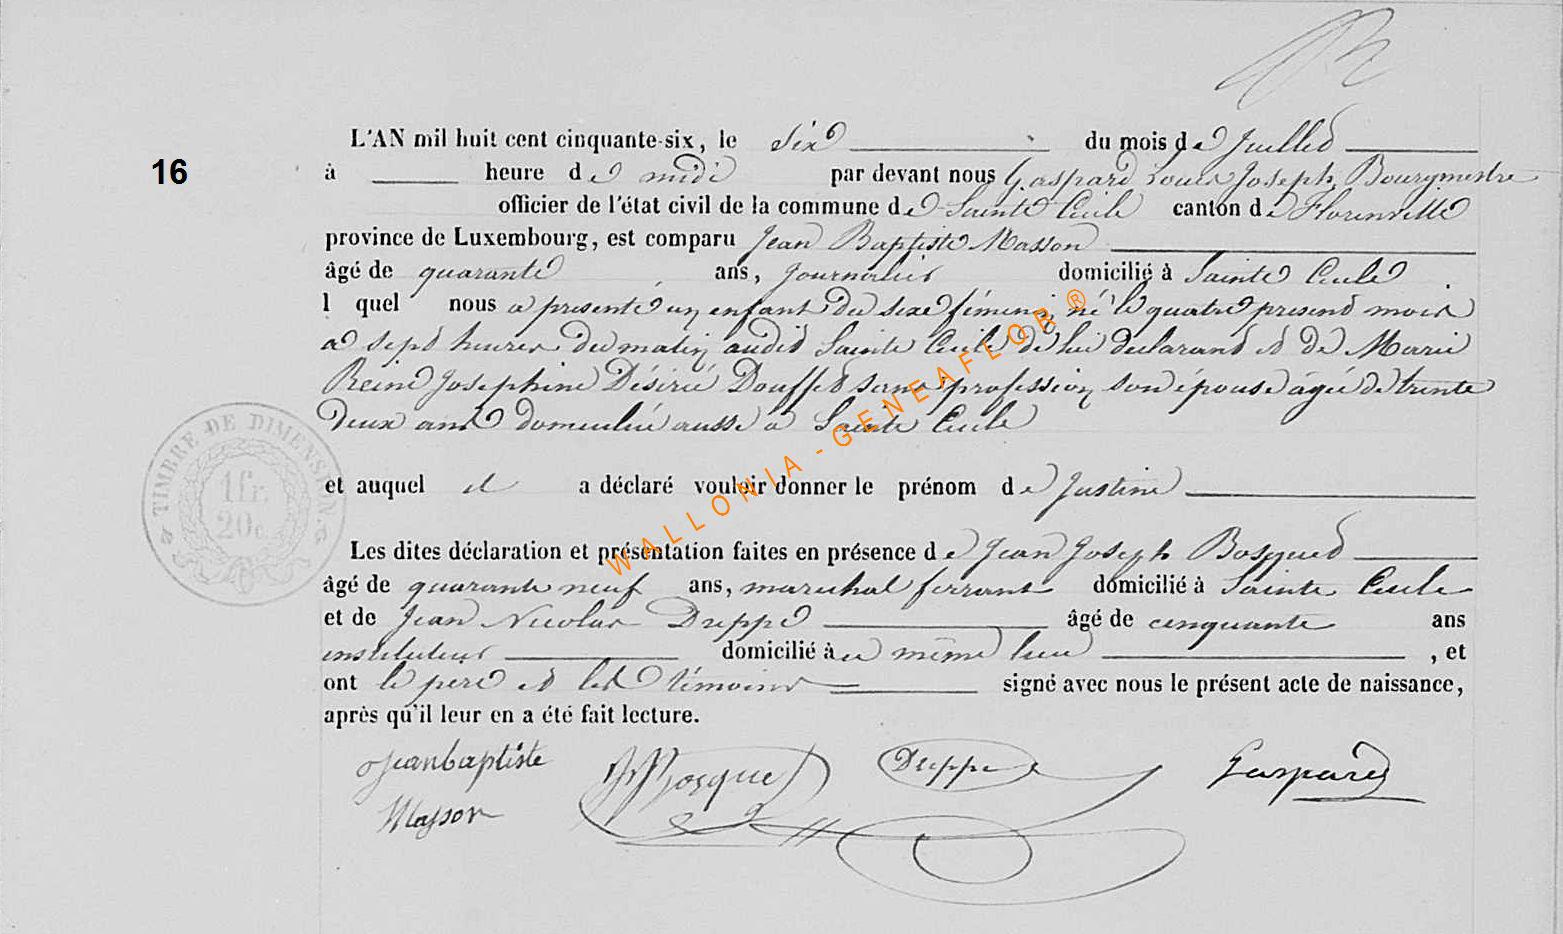 L'AN mil huit cent cinquante-six, le six du mois de Juillet
16
à heure de midi par devant nous Gaspard Louis Joseph, Bourgmestre
officier de l'état civil de la commune de Sainte Cécile canton de Florenville
province de Luxembourg, est comparu Jean Baptiste Masson
âgé de quarante ans, Journalier domicilié à Sainte Cecile
l quel nous a presenté un enfant du sexe féminin, né le quatre present mois
a sept heures du matin audit Sainte Cecile de lui declarant et de Marie
Reine Josephine Désirée Douffet sans profession son épouse âgée de trente
deux ans domiciliée aussi a Sainte Cecile
TIMBRE DE DIMENSION.
1 fr.
20 c.
et auquel il a déclaré vouloir donner le prénom de Justine
Les dites déclaration et présentation faites en présence de Jean Joseph Bosquet
âgé de quarante neuf ans, marechal ferrant domicilié à Sainte Cecile
et de Jean Nicolas Dreppe âgé de cinquante ans
instituteur domicilié à ce même lieu , et
ont le pere et les témoins signé avec nous le présent acte de naissance,
après qu'il leur en a été fait lecture.
Jeanbaptiste
Masson
JJBosquet
Dreppe
Gaspard
WALLONIA - GENEAFLOR ®